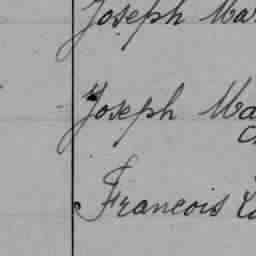 Joseph Mar
Joseph Ma
Francois